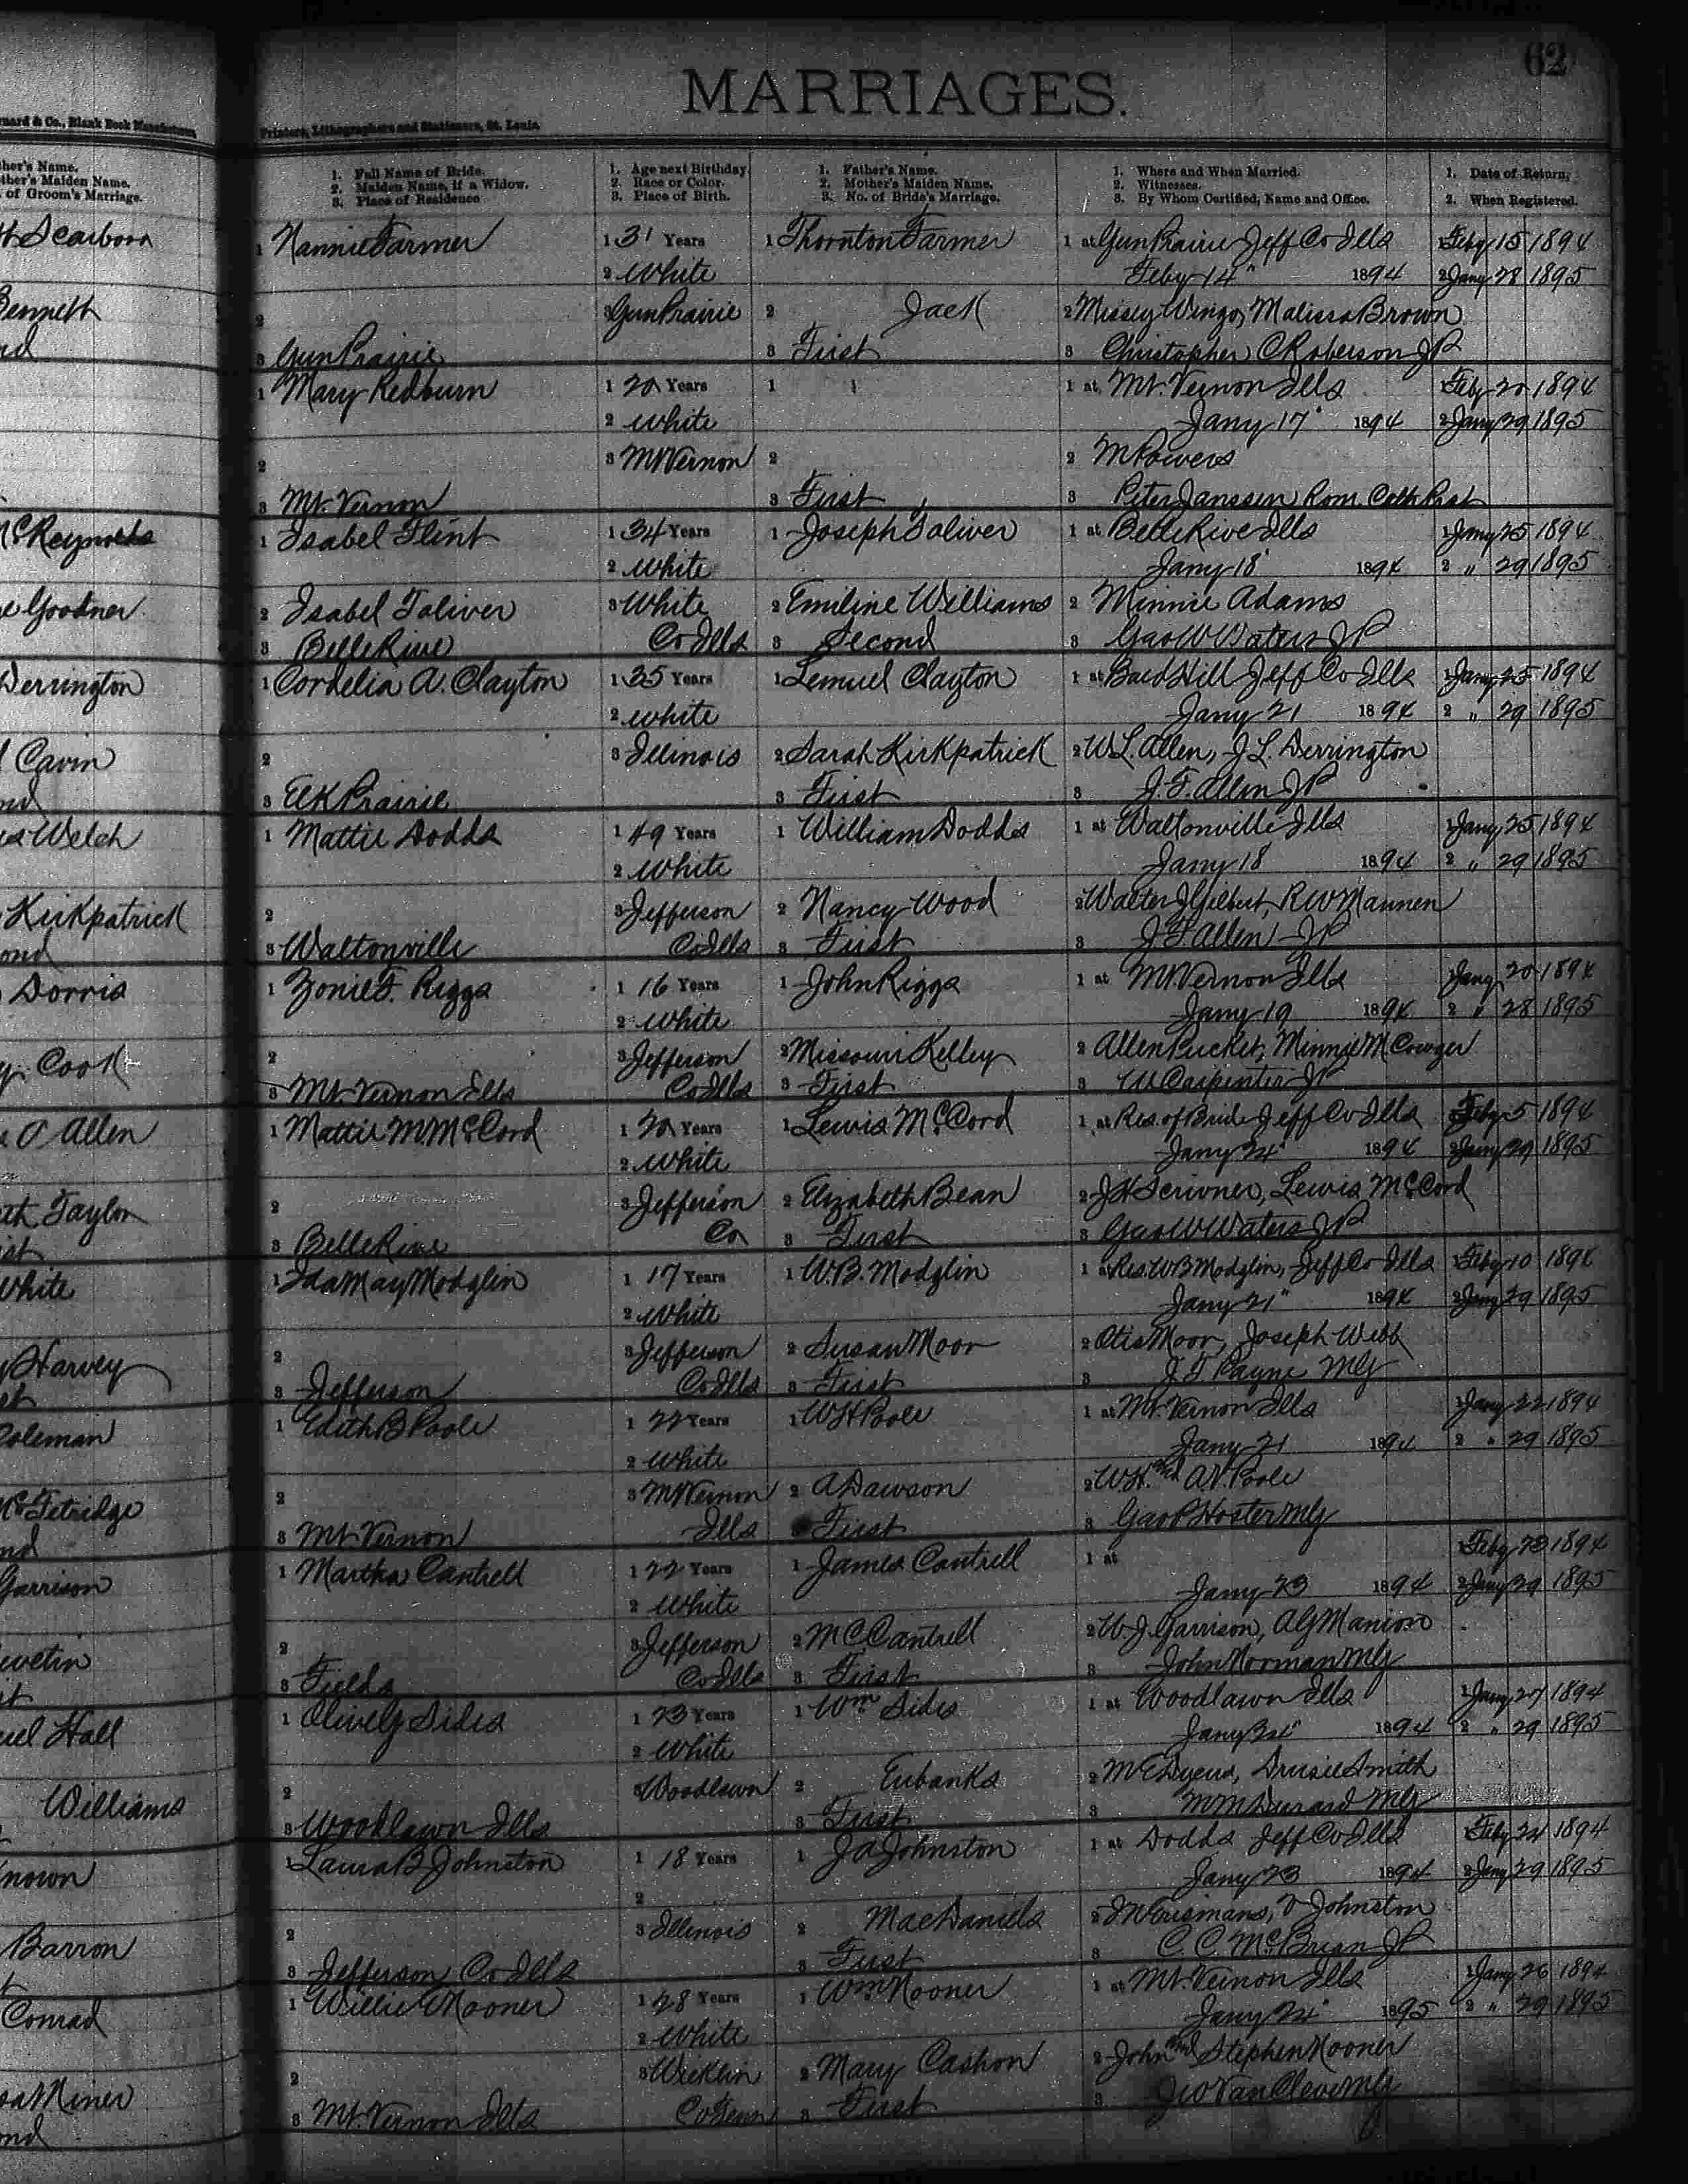 62
MARRIAGES.
nard & Co., Blank Book Manufacturers
Printers, Lithographers and Stationers, St. Louis.
her's Name.
ther's Maiden Name.
of Groom's Marriage.
1. Full Name of Bride.
2. Maiden Name, if a Widow.
3. Place of Residence
1. Age next Birthday
2. Race or Color.
3. Place of Birth.
1. Father's Name.
2. Mother's Maiden Name.
3. No. of Bride's Marriage.
1. Where and When Married.
2. Witnesses.
3. By Whom Certified, Name and Office.
1. Date of Return.
2. When Registered.
Scarborn
1 Nannie Farmer 1 31 Years 1 Thornton Farmer 1 at Gun Prairie Jeff Co Ills 1 Feby 15 1894
2 White Feby 14" 1894 2 Jany 28 1895
Bennett
2 3 Gun Prairie 2 Jack 2 Missey Wingo, Malissa Brown
3 Gun Prairie 3 First 3 Christopher C Roberson JP
1 Mary Redburn 1 20 Years 1 1 at Mt. Vernon Ills 1 Feby 20 1894
2 White Jany 17" 1894 2 Jany 29 1895
2 3 Mt Vernon 2 2 M Powers
3 Mt. Vernon 3 First 3 Peter Janssen Rom. Cath Prst
McReynolds
1 Isabel Flint 1 34 Years 1 Joseph Toliver 1 at Belle Rive Ills 1 Jany 25 1894
2 White Jany 18" 1894 2 " 29 1895
Goodner
2 Isabel Toliver 3 White 2 Emiline Williams 2 Minnie Adams
3 Belle Rive Co Ills 3 Second 3 Geo W Waters JP
Derrington
1 Cordelia A. Clayton 1 35 Years 1 Lemuel Clayton 1 at Bald Hill Jeff Co Ills 1 Jany 25 1894
2 White Jany 21 1894 2 " 29 1895
Cavin
2 3 Illinois 2 Sarah Kirkpatrick 2 W.L. Allen, J L. Derrington
3 Elk Prairie 3 First 3 J. F. Allen JP
Welch
1 Mattie Dodds 1 49 Years 1 William Dodds 1 at Waltonville Ills 1 Jany 25 1894
2 White Jany 18 1894 2 " 29 1895
Kirkpatrick
2 3 Jefferson 2 Nancy Wood 2 Walter J Gilbert, R W Mannen
3 Waltonville Co Ills 3 First 3 J F Allen JP
Dorris
1 Zonie F. Riggs 1 16 Years 1 John Riggs 1 at Mt Vernon Ills 1 Jany 20 1894
2 White Jany 19 1894 2 " 28 1895
Cook
2 3 Jefferson 2 Missouri Kelley 2 Allen Pucket, Minnie McCowger
3 Mt Vernon Ills Co Ills 3 First 3 W Carpenter JP
Allen
1 Mattie M McCord 1 20 Years 1 Lewis McCord 1 at Res. of Bride Jeff Co Ills 1 Feby 5 1894
2 White Jany 24" 1894 2 Jany 29 1895
Taylor
2 3 Jefferson 2 Elizabeth Bean 2 J H Scrivner, Lewis McCord
3 Belle Rive Co 3 First 3 Geo W Waters JP
White
1 Ida May Modglin 1 17 Years 1 W. B. Modglin 1 at Res. W B Modglin, Jeff Co Ills 1 Feby 10 1894
2 White Jany 21" 1894 2 Jany 29 1895
Harvey
2 3 Jefferson 2 Susan Moor 2 Otis Moor, Joseph Webb
3 Jefferson Co Ills 3 First 3 J. T. Payne MG
Coleman
1 Edith B Poole 1 22 Years 1 W H Poole 1 at Mt. Vernon Ills 1 Jany 22 1894
2 White Jany 21 1894 2 " 29 1895
McFetridge
2 3 Mt Vernon 2 A Dawson 2 W H. and A V. Poole
3 Mt Vernon Ills 3 First 3 Geo P Hoster MG
Garrison
1 Martha Cantrell 1 22 Years 1 James Cantrell 1 at 1 Feby 23 1894
2 White Jany 23 1894 2 Jany 29 1895
2 3 Jefferson 2 M C Cantrell 2 W. J. Garrison, A G Manion
3 Fields Co Ills 3 First 3 John Norman MG
Hall
1 Sides 1 23 Years 1 Wm Sides 1 at Woodlawn Ills 1 Jany 27 1894
2 White Jany 1894 2 " 29 1895
Williams
2 3 Woodlawn 2 Eubanks 2 Drusie Smith
3 Woodlawn Ills 3 First 3 MG
nown
1 Laura B Johnston 1 18 Years 1 J A Johnston 1 at Dodds Jeff Co Ills 1 Feby 24 1894
2 Jany 23 1894 2 Jany 29 1895
Barron
2 3 Illinois 2 MacDaniels 2 Johnston
3 Jefferson Co Ills 3 First 3 C. C. McBrian JP
Conrad
1 Willie Mooner 1 28 Years 1 Wm Mooner 1 at Mt. Vernon Ills 1 Jany 26 1894
2 White Jany 24" 1895 2 " 29 1895
Miner
2 3 2 Mary Cashon 2 John and Stephen Mooner
3 Mt. Vernon Ills Co Tenn 3 First 3 Van Cleve MG